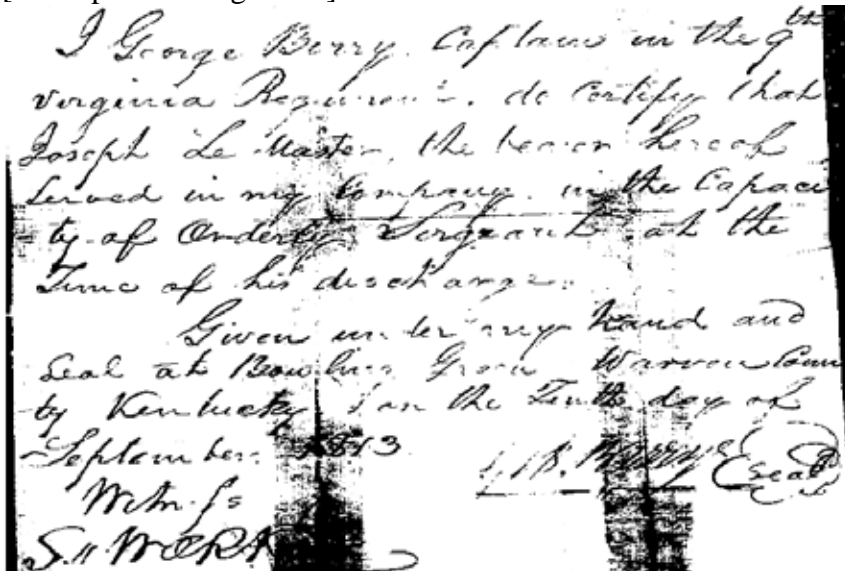 I George Berry. Captain in the 9th
virginia Regiment. do Certify that
Joseph Le Master, the bearer hereof
Served in my Company. in the Capaci
-ty of Orderly Sergeant at the
Time of his discharge.
Given under my hand and
Seal at Bowling Green Warren Coun
ty Kentucky, on the Tenth day of
September
Berry (seal)
Witness